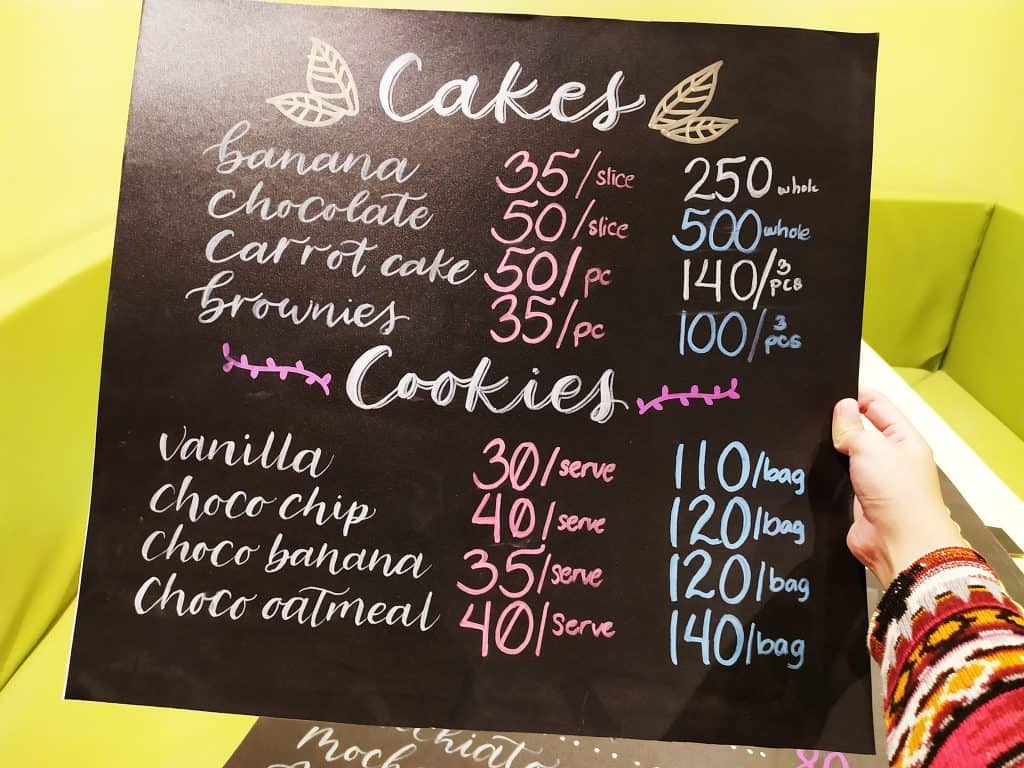 Cakes
banana 35/slice 250 whole
chocolate 50/slice 500 whole
carrot cake 50/pc 140/3 pcs
brownies 35/pc 100/3 pcs
Cookies
vanilla 30/serve 110/bag
choco chip 40/serve 120/bag
choco banana 35/serve 120/bag
choco oatmeal 40/serve 140/bag